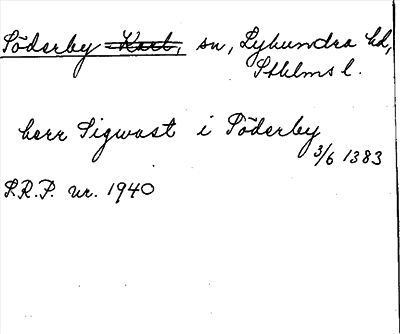 Söderby Karl, sn, Lyhundra hd,
Sthlms l.
herr Sigwast i Söderby
3/6 1383
S.R.P. nr. 1940